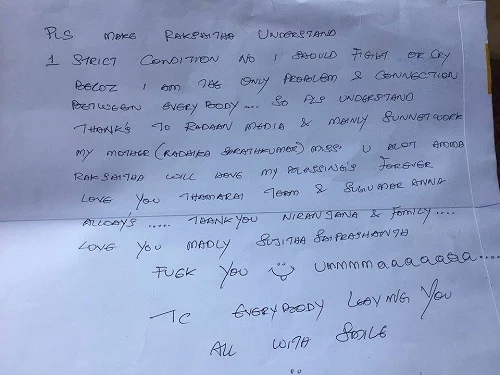 PLS MAKE RAKSAITHA UNDERSTAND
1 STRICT CONDITION NO 1 SHOULD FIGHT OR CRY
BECOZ I AM THE ONLY PROBLEM & CONNECTION
BETWEEN EVERYBODY.... SO PLS UNDERSTAND
THANK'S TO RADAAN MEDIA & MAINLY SUNNETWORK
MY MOTHER (RADHIKA SARATHKUMAR) MISS U ALOT AMMA
RAKSAITHA WILL HAVE MY BLESSING'S FOREVER
LOVE YOU THAMARAI TEAM & SUGUMAR ANNA
ALWAY'S ..... THANKYOU NIRANJANA & FAMILY....
LOVE YOU MADLY SUJITHA SAIPRASHANTH
FUCK YOU ummmmaaaaaaa....
TC EVERYBODY LEAVING YOU
ALL WITH SMILE